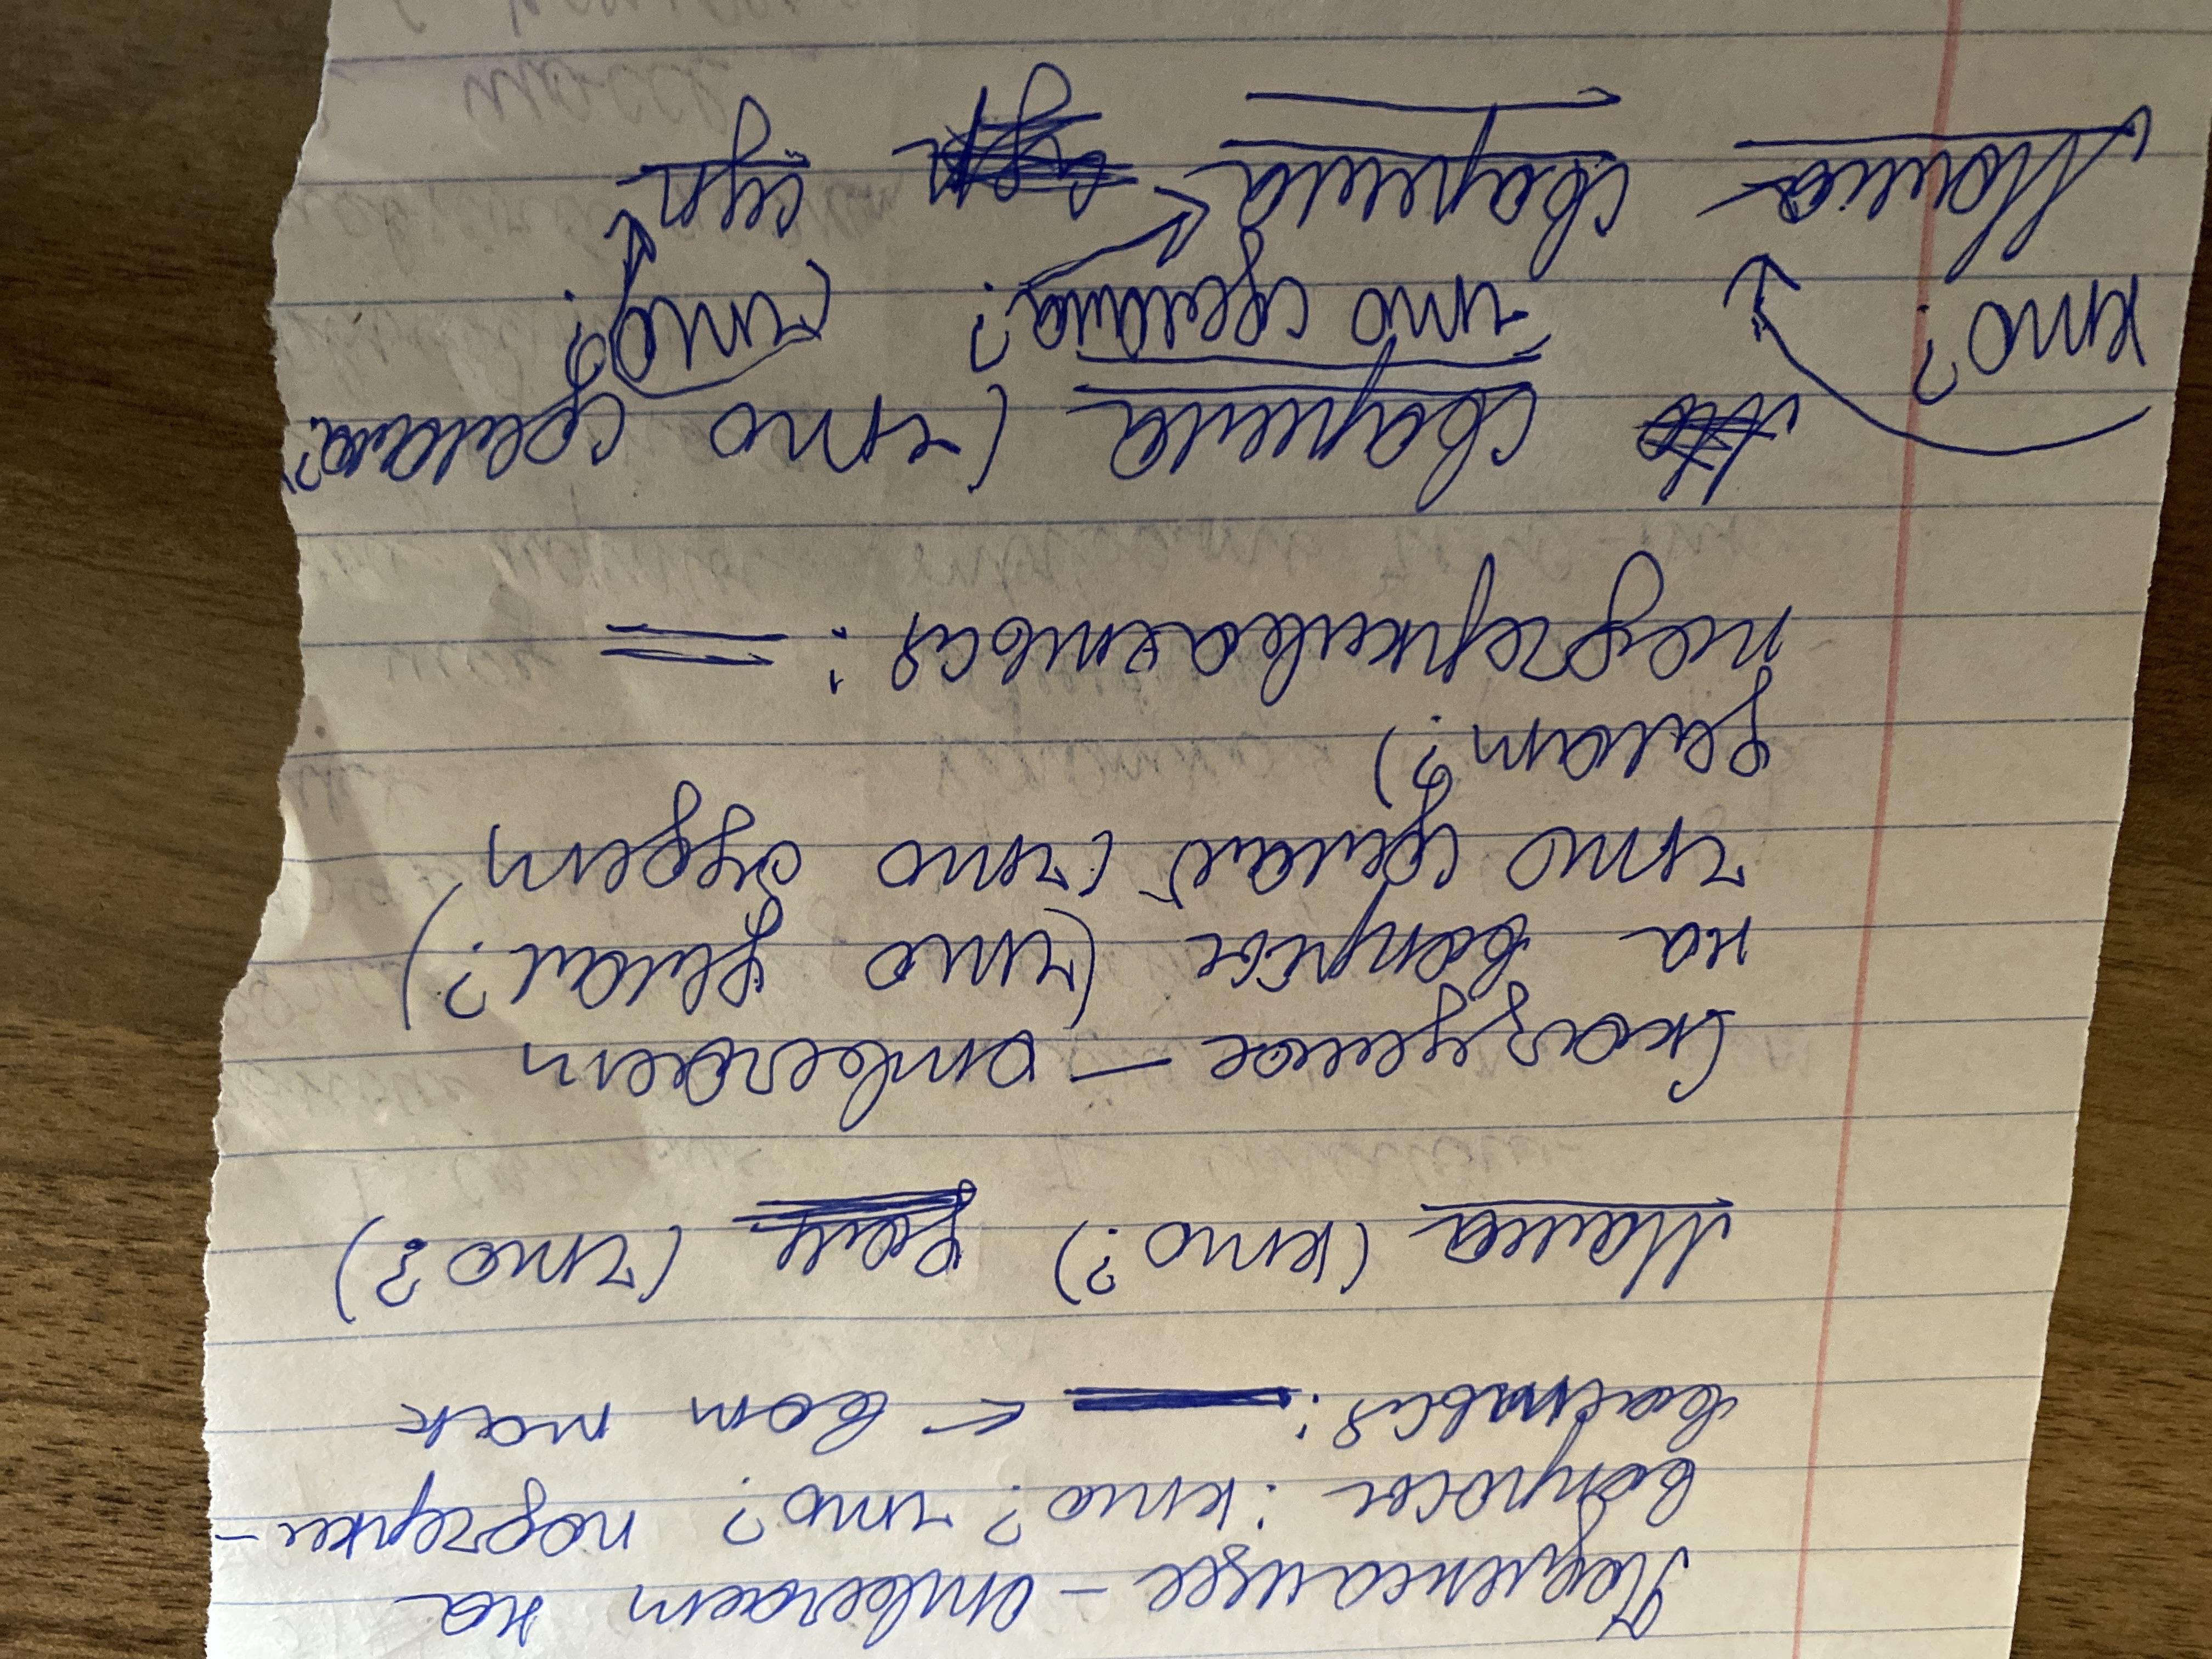 Подлежащее - отвечает на
вопросы: кто? что? подчерки-
вается: — ← вот так
Маша (кто?) (что?)
Сказуемое - отвечает
на вопросы (что делал?)
что сделал (что будет
делат?)
подчеркиваеться: =
сварила (что сделала?
кто? что сделала? (что?
Маша сварила суп